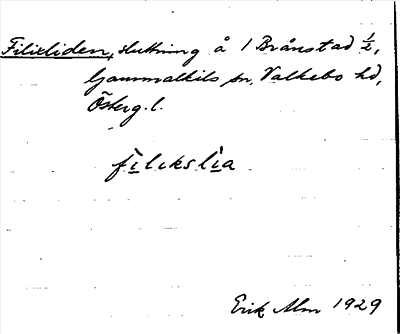 Filixliden, sluttning å 1 Brånstad ½,
Gammalkils sn, Valkebo hd,
Österg. l.
fìlıkslìa
Erik Alm 1929